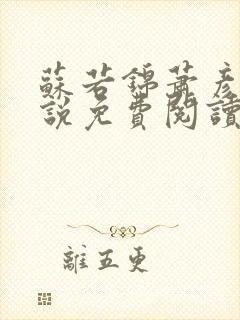 蘇若錦蕭彥
說免費閱讀
離五更